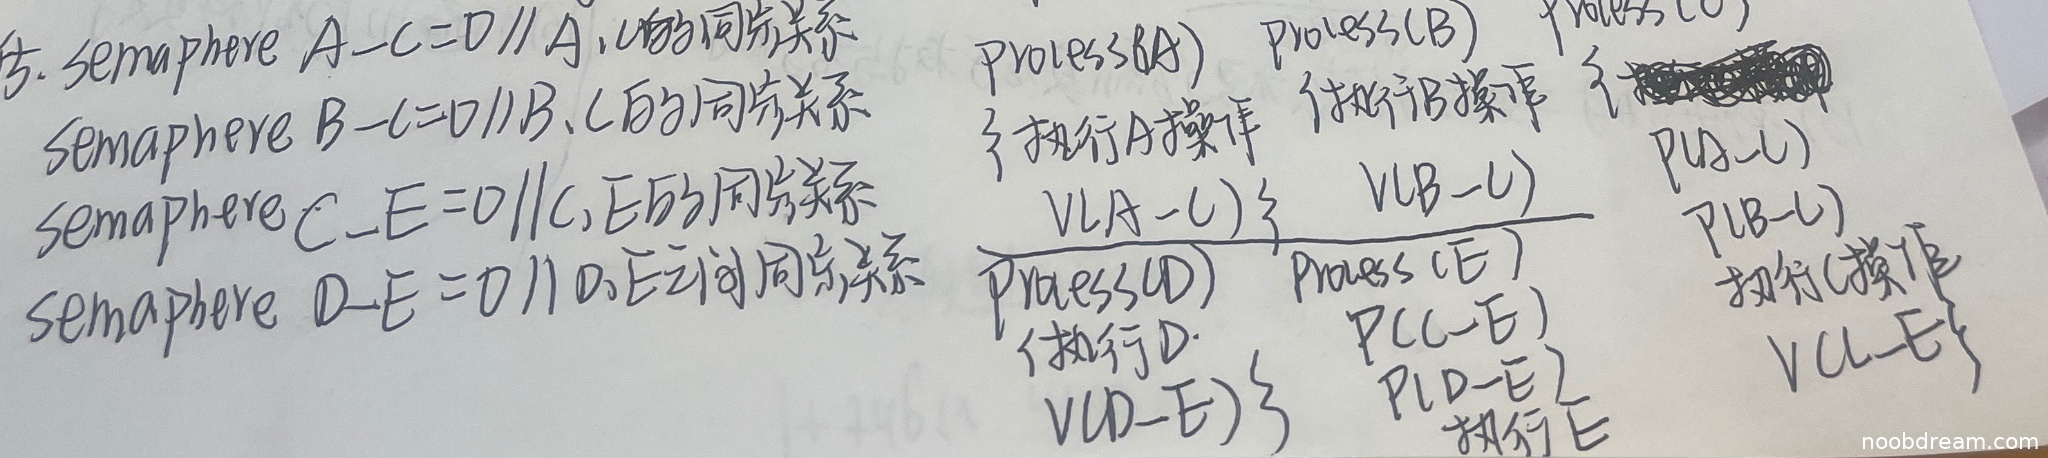 5. semaphere A-C=0 // A、C的同步关系
semaphere B-C=0 // B、C的同步关系
semaphere C-E=0 // C、E的同步关系
semaphere D-E=0 // D、E之间同步关系
process(A)
{执行A操作
V(A-C)}
process(B)
{执行B操作
V(B-C)
process(C)
{
P(A-C)
P(B-C)
执行C操作
V(C-E}
process(D)
{执行D.
V(D-E)}
process(E)
P(C-E)
P(D-E)
执行E
noobdream.com